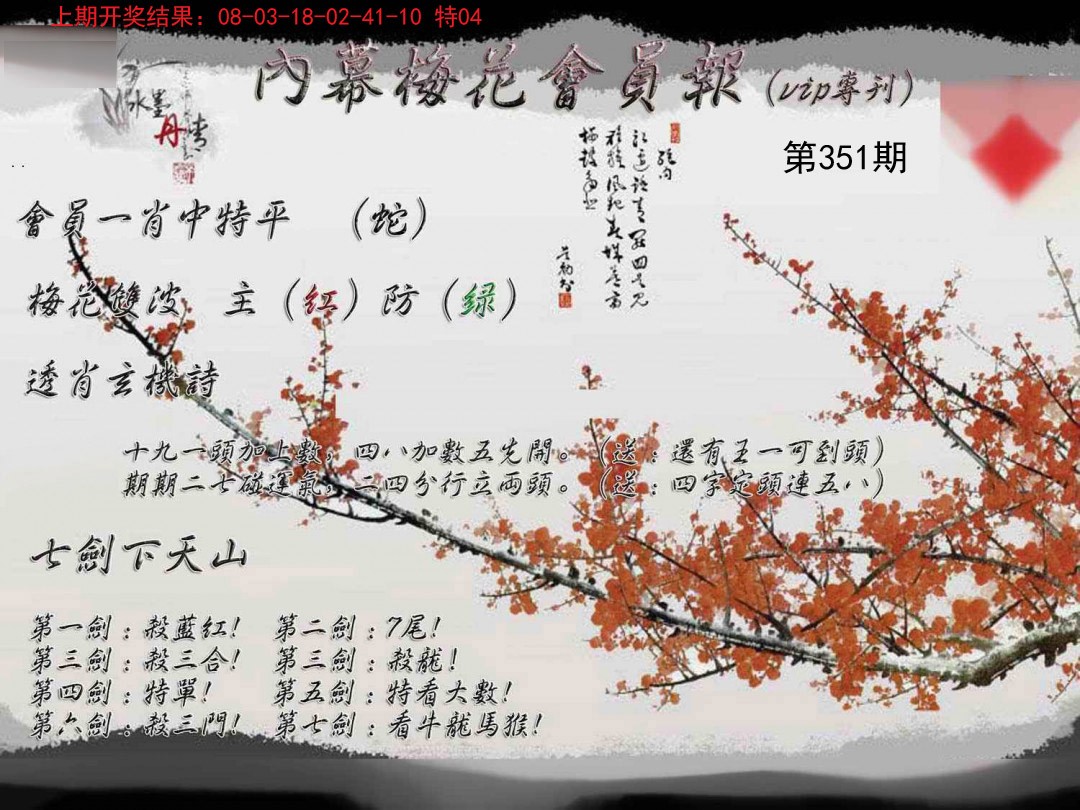 上期开奖结果：08-03-18-02-41-10 特04
內幕梅花會員報(vip專刊)
水墨
丹青
第351期
會員一肖中特平 （蛇）
梅花雙波 主（红）防（绿）
透肖玄機詩
十九一頭加上數，四八加數五先開。（送：還有王一可到頭）
期期二七碰運氣，二四分行立両頭。（送：四字定頭連五八）
七劍下天山
第一劍：殺藍紅！ 第二劍：7尾！
第三劍：殺三合！ 第三劍：殺龍！
第四劍：特單！ 第五劍：特看大數！
第六劍：殺三門！ 第七劍：看牛龍馬猴！